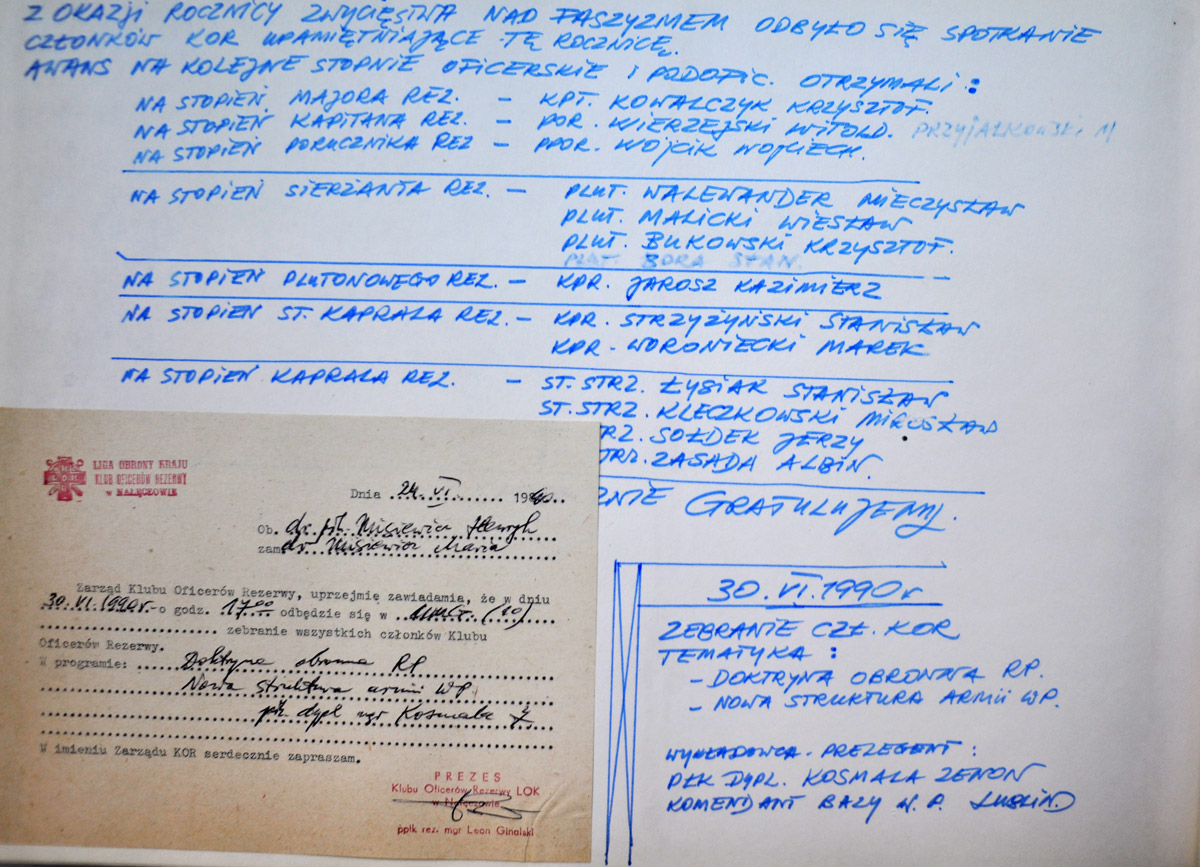 Z OKAZJI ROCZNICY ZWYCIĘSTWA NAD FASZYZMEM ODBYŁO SIĘ SPOTKANIE
CZŁONKÓW KOR UPAMIĘTNIAJĄCE TĘ ROCZNICĘ.
AWANS NA KOLEJNE STOPNIE OFICERSKIE I PODOFIC. OTRZYMALI:
NA STOPIEŃ MAJORA REZ. – KPT. KOWALCZYK KRZYSZTOF.
NA STOPIEŃ KAPITANA REZ. – POR. WIERZEJSKI WITOLD. PRZYJAŁKOWSKI M
NA STOPIEŃ PORUCZNIKA REZ – PPOR. WÓJCIK WOJCIECH.
NA STOPIEŃ SIERŻANTA REZ. – PLUT. WALEWANDER MIECZYSŁAW
PLUT. MALICKI WIESŁAW
PLUT. BUKOWSKI KRZYSZTOF.
PLUT. BORA STAN.
NA STOPIEŃ PLUTONOWEGO REZ. – KPR. JAROSZ KAZIMIERZ
NA STOPIEŃ ST. KAPRALA REZ. – KPR. STRZYŻYŃSKI STANISŁAW
KPR. WORONIECKI MAREK
NA STOPIEŃ KAPRALA REZ. – ST. STRZ. ŁYSIAK STANISŁAW
ST. STRZ. KLECZKOWSKI MIROSŁAW
RZ. SOŁDEK JERZY
TRZ. ZASADA ALBIN.
ZNIE GRATULUJEMY.
LIGA OBRONY KRAJU
KLUB OFICERÓW REZERWY
w NAŁĘCZOWIE
Dnia 24 VI. 1990
Ob. dr. płk. Misiewicz Henryk
zam dr. Misiewicz Maria
Zarząd Klubu Oficerów Rezerwy, uprzejmię zawiadamia, że w dniu
30.VI.1990r. o godz. 17⁰⁰ odbędzie się w (10)
zebranie wszystkich członków Klubu
Oficerów Rezerwy.
W programie: Doktryna obronna RP
Nowa struktura armii WP
płk. dypl. mgr Kosmala Z
W imieniu Zarządu KOR serdecznie zapraszam.
PREZES
Klubu Oficerów Rezerwy LOK
w Nałęczowie
ppłk rez. mgr Leon Ginalski
30.VI.1990r
ZEBRANIE CZŁ. KOR
TEMATYKA:
– DOKTRYNA OBRONNA RP.
– NOWA STRUKTURA ARMII WP.
WYKŁADOWCA. PREZEGENT:
PŁK DYPL. KOSMALA ZENON
KOMENDANT BAZY W.P. LUBLIN